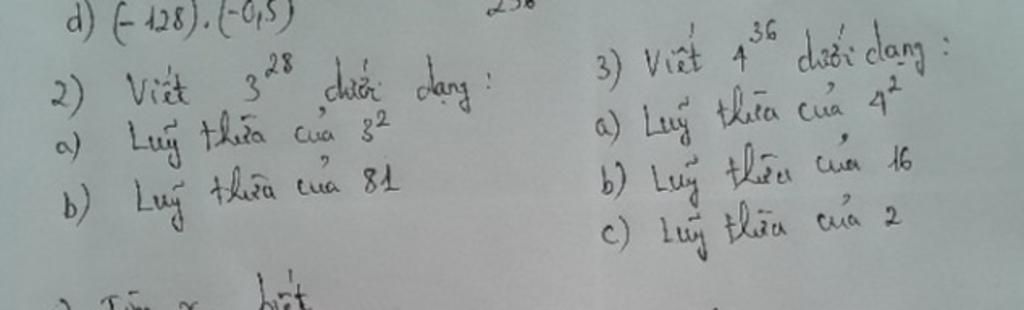 d) (-128).(-0,5)
2) Viết 3^28 dưới dạng :
a) Luỹ thừa của 3^2
b) Luỹ thừa của 81
3) Viết 4^36 dưới dạng :
a) Luỹ thừa của 4^2
b) Luỹ thừa của 16
c) Luỹ thừa của 2
biết